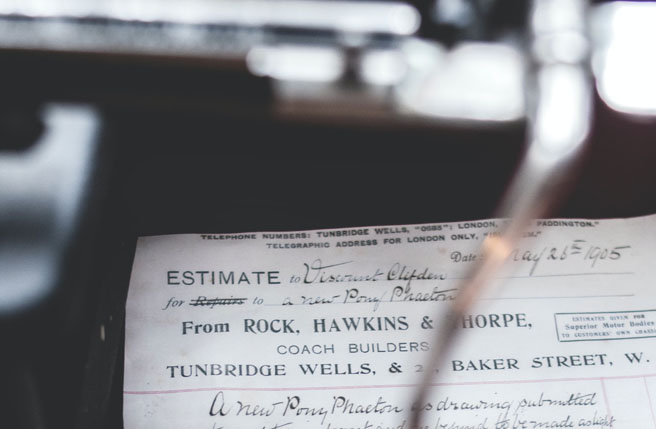 TELEPHONE NUMBERS: TUNBRIDGE WELLS, "0085"; LONDON, PADDINGTON."
TELEGRAPHIC ADDRESS FOR LONDON ONLY,
Date: May 26th 1905
ESTIMATE to Viscount Clifden
for Repairs to a new Pony Phaeton
From ROCK, HAWKINS & THORPE,
ESTIMATES GIVEN FOR
Superior Motor Bodies
TO CUSTOMERS' OWN CHASSIS
COACH BUILDERS
TUNBRIDGE WELLS, & 2 , BAKER STREET, W.
A new Pony Phaeton as drawing submitted
to be made as light